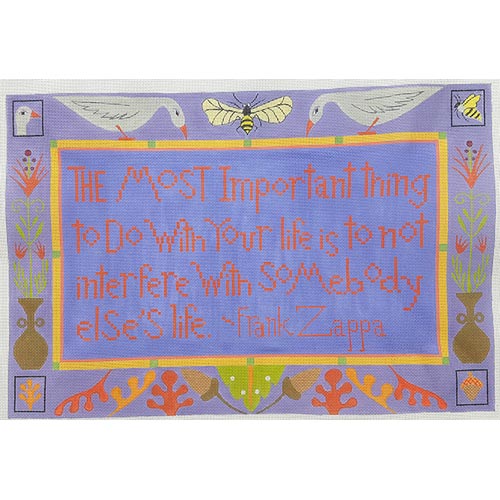 THE MOST Important thing
to Do With Your life is to not
interfere With soMebody
else's life. ~Frank Zappa